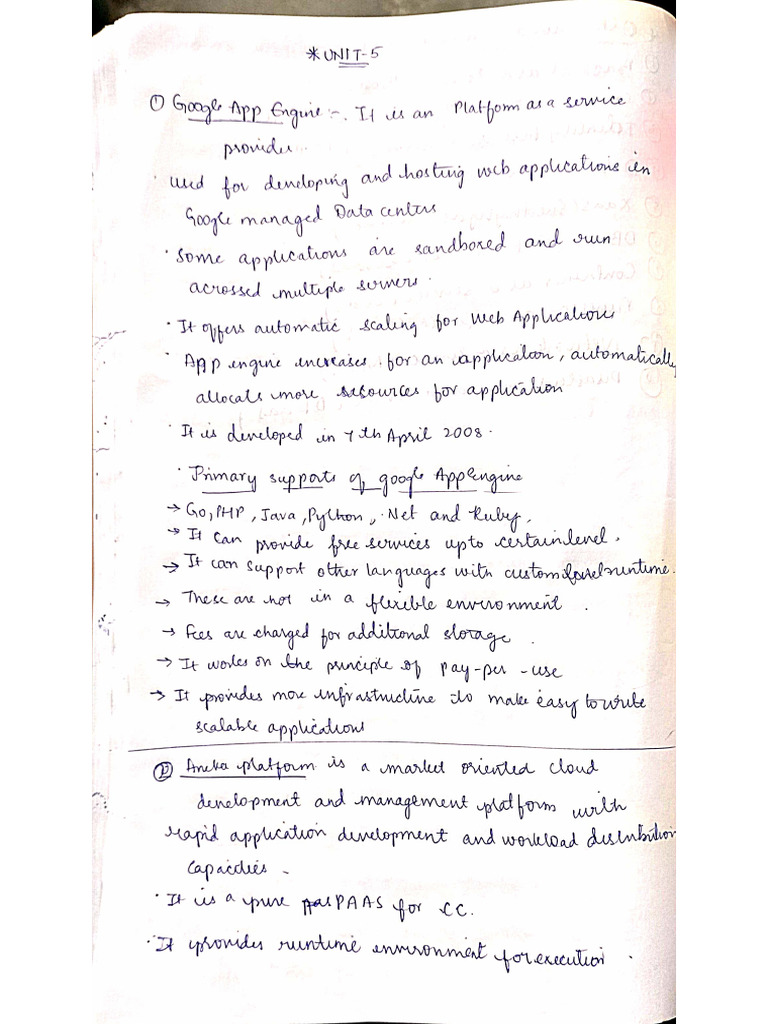 * UNIT-5
① Google App Engine :- It is an Platform as a service
provider.
· Used for developing and hosting web applications in
Google managed Data centers
· Some applications are sandboxed and run
acrossed multiple servers.
· It offers automatic scaling for Web Applications
· App engine increases for an application, automatically
allocats more resources for application
· It is developed in 7th April 2008.
· Primary supports of google AppEngine
→ Go, PHP, Java, Python, .Net and Ruby.
→ It can provide free services upto certain level.
→ It can support other languages with custom level runtime.
→ These are not in a flexible environment.
→ Fees are charged for additional storage.
→ It works on the principle of pay-per-use
→ It provides more infrastructure to make easy to write
scalable applications
② Aneka platform is a market oriented cloud
development and management platform with
rapid application development and workload distribution
capacities.
· It is a pure PAAS for CC.
· It provides runtime environment for execution.